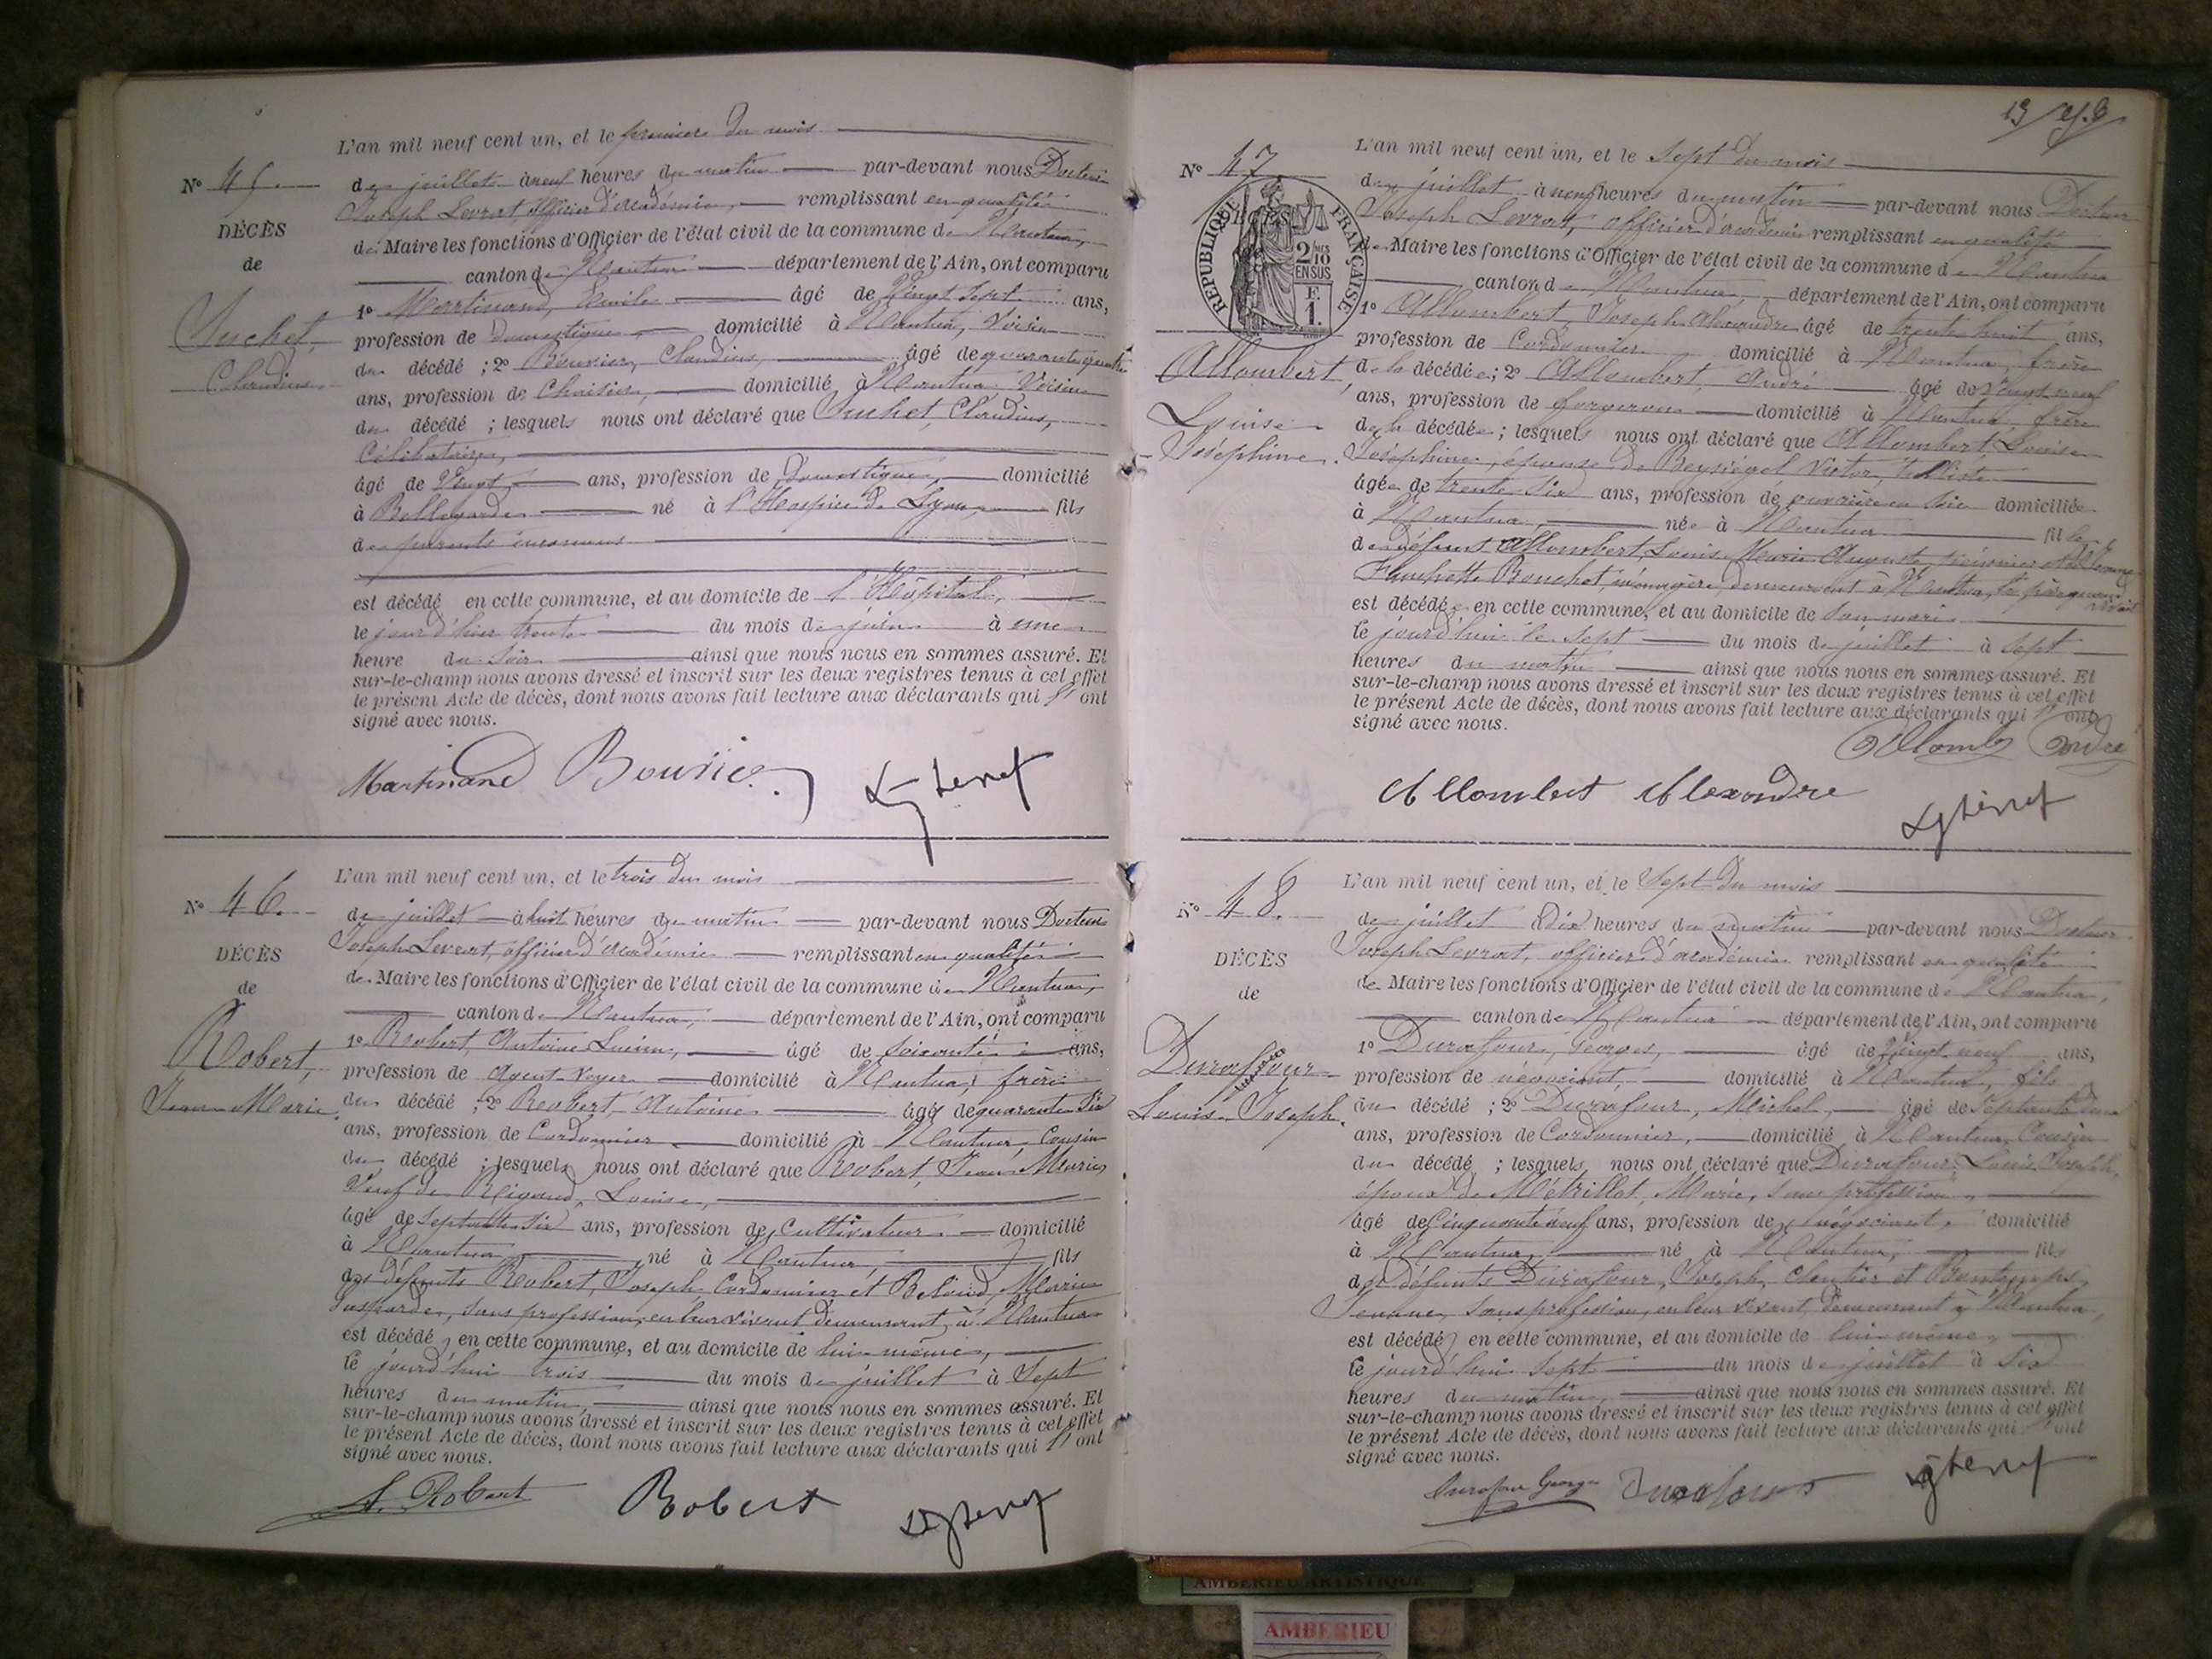 L'an mil neuf cent un, et le premier du mois
N° 45.
de juillet à neuf heures du matin par-devant nous Docteur
Joseph Levrat, officier d'académie, remplissant en qualité
DÉCÈS
de Maire les fonctions d'Officier de l'état civil de la commune de Nantua,
de
canton de Nantua département de l'Ain, ont comparu
1° Martinand, Emile âgé de Vingt sept ans,
Suchet,
profession de Domestique domicilié à Nantua, Voisin
Claudius
du décédé ; 2° Bouvier, Claudius, âgé de quarante quatre
ans, profession de Chaisier, domicilié à Nantua, Voisin
du décédé ; lesquels nous ont déclaré que Suchet, Claudius,
Célibataire,
âgé de Vingt ans, profession de Domestique, domicilié
à Bellegarde né à l'Hospice de Lyon, fils
de parents inconnus
est décédé en cette commune, et au domicile de l'Hôpital,
le jour d'hier trente du mois de juin à une
heure du soir ainsi que nous nous en sommes assuré. Et
sur-le-champ nous avons dressé et inscrit sur les deux registres tenus à cet effet
le présent Acte de décès, dont nous avons fait lecture aux déclarants qui l'ont
signé avec nous.
Martinand Bouvier
L'an mil neuf cent un, et le trois du mois
N° 46.
de juillet à huit heures du matin par-devant nous Docteur
Joseph Levrat, officier d'académie remplissant en qualité
DÉCÈS
de Maire les fonctions d'Officier de l'état civil de la commune de Nantua,
de
canton de Nantua, département de l'Ain, ont comparu
Robert,
1° Robert, Antoine Lucien, âgé de soixante ans,
profession de Agent-Voyer domicilié à Nantua, frère
Jean-Marie.
du décédé ; 2° Robert, Antoine âgé de quarante six
ans, profession de Cordonnier domicilié à Nantua, Cousin
du décédé ; lesquels nous ont déclaré que Robert, Jean-Marie,
Veuf de Rigaud, Louise,
âgé de septante-six ans, profession de Cultivateur domicilié
à Nantua né à Nantua, fils
des défunts Robert, Joseph Cordonnier et Marie
sans profession, en leur vivant demeurant à Nantua
est décédé en cette commune, et au domicile de lui-même,
le jourd'hui trois du mois de juillet à sept
heures du matin, ainsi que nous nous en sommes assuré. Et
sur-le-champ nous avons dressé et inscrit sur les deux registres tenus à cet effet
le présent Acte de décès, dont nous avons fait lecture aux déclarants qui l'ont
signé avec nous.
A. Robert Robert
13
L'an mil neuf cent un, et le Sept du mois
N° 47
de juillet à neuf heures du matin par-devant nous Docteur
Joseph Levrat, officier d'académie remplissant en qualité
RÉPUBLIQUE FRANÇAISE
2/10 EN SUS
F. 1.
de Maire les fonctions d'Officier de l'état civil de la commune de Nantua
canton de Nantua département de l'Ain, ont comparu
1° Allombert, Joseph Alexandre âgé de trente huit ans,
profession de Cordonnier domicilié à Nantua, frère
Allombert,
de la décédée ; 2° Allombert, André âgé de vingt neuf
ans, profession de forgeron domicilié à Nantua, frère
Louise
de la décédée ; lesquels nous ont déclaré que Allombert, Louise
Joséphine.
Joséphine, épouse de Victor,
âgée de trente six ans, profession de ouvrière en soie domiciliée
à Nantua, née à Nantua fille
de défunt Allombert, Louis Marie Auguste, et de
Bouchet, ménagère, demeurant à Nantua, le père quand vivait
est décédée en cette commune, et au domicile de son mari
le jourd'hui le sept du mois de juillet à sept
heures du matin ainsi que nous nous en sommes assuré. Et
sur-le-champ nous avons dressé et inscrit sur les deux registres tenus à cet effet
le présent Acte de décès, dont nous avons fait lecture aux déclarants qui l'ont
signé avec nous.
Allomb André
Allombert Alexandre
L'an mil neuf cent un, et le Sept du mois
N° 48.
de juillet à dix heures du matin par-devant nous Docteur
Joseph Levrat, officier d'académie remplissant en qualité
DÉCÈS
de Maire les fonctions d'Officier de l'état civil de la commune de Nantua,
de
canton de Nantua département de l'Ain, ont comparu
Durafour
1° Durafour, Georges, âgé de Vingt neuf ans,
profession de négociant, domicilié à Nantua, fils
Louis-Joseph.
du décédé ; 2° Durafour, Michel, âgé de septante deux
ans, profession de Cordonnier, domicilié à Nantua, Cousin
du décédé ; lesquels nous ont déclaré que Durafour, Louis Joseph,
époux de Métrillot, Marie, sans profession,
âgé de Cinquante neuf ans, profession de négociant, domicilié
à Nantua, né à Nantua, fils
des défunts Durafour, Joseph, cloutier et
Jeanne, sans profession, en leur vivant, demeurant à Nantua,
est décédé en cette commune, et au domicile de lui-même,
le jourd'hui sept du mois de juillet à six
heures du matin, ainsi que nous nous en sommes assuré. Et
sur-le-champ nous avons dressé et inscrit sur les deux registres tenus à cet effet
le présent Acte de décès, dont nous avons fait lecture aux déclarants qui l'ont
signé avec nous.
Durafour Georges Durafour
AMBERIEU ARTISTIQUE
AMBERIEU